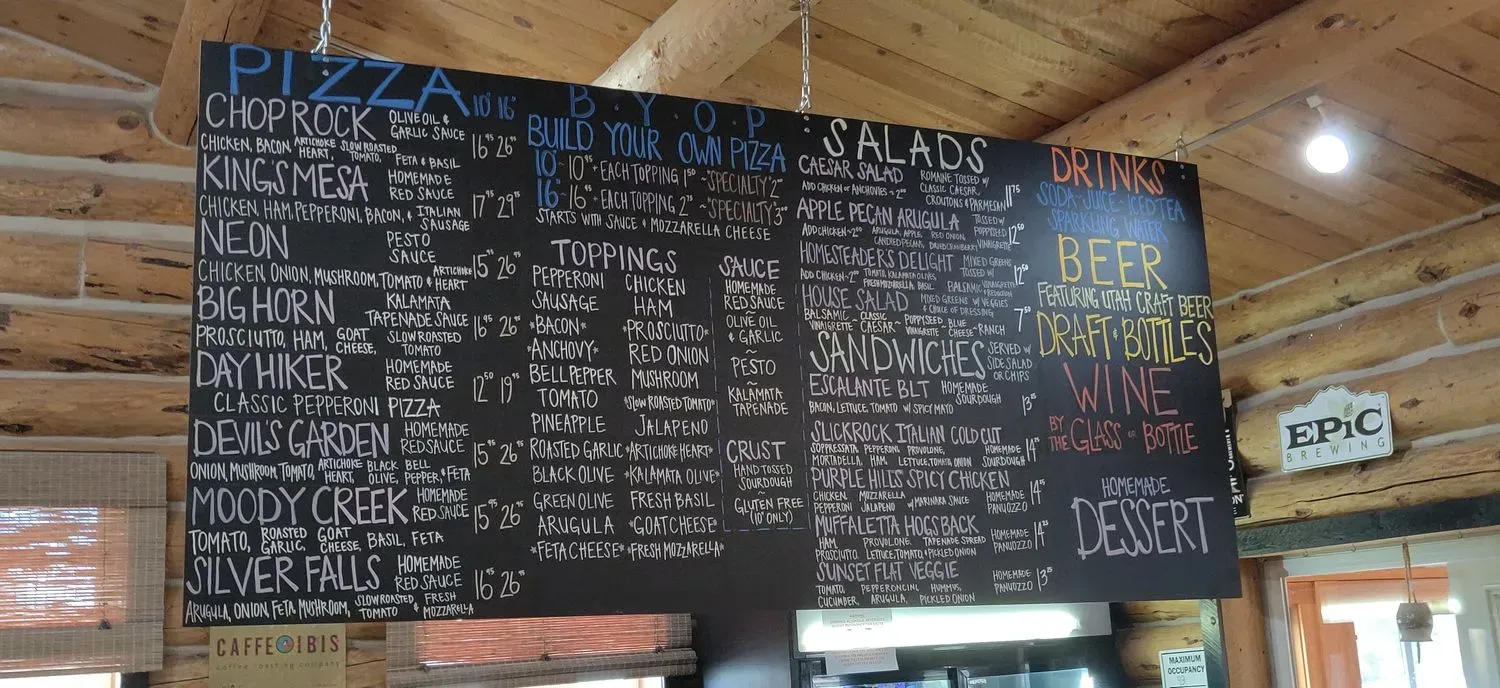 PIZZA 10" 16"
CHOP ROCK OLIVE OIL & GARLIC SAUCE 16⁹⁵ 26⁹⁵
CHICKEN, BACON, ARTICHOKE HEART, SLOW ROASTED TOMATO, FETA & BASIL
KING'S MESA HOMEMADE RED SAUCE 17⁹⁵ 29⁹⁵
CHICKEN, HAM, PEPPERONI, BACON, & ITALIAN SAUSAGE
NEON PESTO SAUCE 15⁹⁵ 26⁹⁵
CHICKEN, ONION, MUSHROOM, TOMATO & ARTICHOKE HEART
BIG HORN KALAMATA TAPENADE SAUCE 16⁹⁵ 26⁹⁵
PROSCIUTTO, HAM, GOAT CHEESE, SLOW ROASTED TOMATO
DAY HIKER HOMEMADE RED SAUCE 12⁵⁰ 19⁹⁵
CLASSIC PEPPERONI PIZZA
DEVIL'S GARDEN HOMEMADE RED SAUCE 15⁹⁵ 26⁹⁵
ONION, MUSHROOM, TOMATO, ARTICHOKE HEART, BLACK OLIVE, BELL PEPPER, & FETA
MOODY CREEK HOMEMADE RED SAUCE 15⁹⁵ 26⁹⁵
TOMATO, ROASTED GARLIC, GOAT CHEESE, BASIL, FETA
SILVER FALLS HOMEMADE RED SAUCE 16⁹⁵ 26⁹⁵
ARUGULA, ONION, FETA, MUSHROOM, SLOW ROASTED TOMATO & FRESH MOZZARELLA
B · Y · O · P
BUILD YOUR OWN PIZZA
10" ~ 10⁹⁵ + EACH TOPPING 1⁵⁰ ~ SPECIALTY 2⁰⁰
16" ~ 16⁹⁵ + EACH TOPPING 2⁰⁰ ~ SPECIALTY 3⁰⁰
STARTS WITH SAUCE & MOZZARELLA CHEESE
TOPPINGS
PEPPERONI CHICKEN
SAUSAGE HAM
*BACON* *PROSCIUTTO*
*ANCHOVY* RED ONION
BELL PEPPER MUSHROOM
TOMATO *SLOW ROASTED TOMATO*
PINEAPPLE JALAPENO
ROASTED GARLIC *ARTICHOKE HEART*
BLACK OLIVE *KALAMATA OLIVE*
GREEN OLIVE FRESH BASIL
ARUGULA *GOAT CHEESE
*FETA CHEESE* *FRESH MOZZARELLA*
SAUCE
HOMEMADE
RED SAUCE
~
OLIVE OIL
& GARLIC
~
PESTO
~
KALAMATA
TAPENADE
CRUST
HAND TOSSED
SOURDOUGH
~
GLUTEN FREE
(10" ONLY)
SALADS
CAESAR SALAD ROMAINE TOSSED W/ CLASSIC CAESAR, CROUTONS & PARMESAN 11⁷⁵
ADD CHICKEN OR ANCHOVIES ~ 2⁰⁰
APPLE PECAN ARUGULA TOSSED W/ POPPYSEED VINAIGRETTE 12⁵⁰
ADD CHICKEN ~ 2⁰⁰ ARUGULA, APPLE, RED ONION, CANDIED PECANS, DRIED CRANBERRY
HOMESTEADERS DELIGHT MIXED GREENS TOSSED W/ BALSAMIC VINAIGRETTE 12⁵⁰
ADD CHICKEN ~ 2⁰⁰ TOMATO, KALAMATA OLIVES, FRESH MOZZARELLA, BASIL
HOUSE SALAD MIXED GREENS W/ VEGGIES & CHOICE OF DRESSING 7⁵⁰
BALSAMIC VINAIGRETTE ~ CLASSIC CAESAR ~ POPPYSEED VINAIGRETTE ~ BLUE CHEESE ~ RANCH
SANDWICHES SERVED W/ SIDE SALAD OR CHIPS
ESCALANTE BLT HOMEMADE SOURDOUGH 13⁷⁵
BACON, LETTUCE, TOMATO W/ SPICY MAYO
SLICKROCK ITALIAN COLD CUT 14⁷⁵
SOPPRESSATA, PEPPERONI, PROVOLONE, HOMEMADE
MORTADELLA, HAM, LETTUCE, TOMATO, ONION SOURDOUGH
PURPLE HILLS SPICY CHICKEN
CHICKEN, MOZZARELLA HOMEMADE PANUOZZO 14⁷⁵
PEPPERONI, JALAPENO W/ MARINARA SAUCE
MUFFALETTA HOGSBACK
HAM, PROVOLONE, TAPENADE SPREAD HOMEMADE PANUOZZO 14⁷⁵
PROSCIUTTO, LETTUCE, TOMATO, PICKLED ONION
SUNSET FLAT VEGGIE HOMEMADE PANUOZZO 13⁷⁵
TOMATO, PEPPERONCINI, HUMMUS,
CUCUMBER, ARUGULA, PICKLED ONION
DRINKS
SODA-JUICE-ICED TEA
SPARKLING WATER
BEER
FEATURING UTAH CRAFT BEER
DRAFT & BOTTLES
WINE
BY THE GLASS OR BOTTLE
HOMEMADE
DESSERT
EPiC
BREWING
CAFFE IBIS
coffee roasting company
MAXIMUM
OCCUPANCY